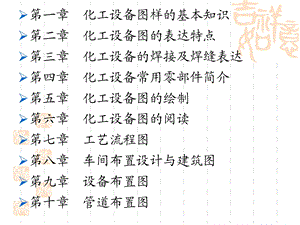 第一章 化工设备图样的基本知识
第二章 化工设备图的表达特点
第三章 化工设备的焊接及焊缝表达
第四章 化工设备常用零部件简介
第五章 化工设备图的绘制
第六章 化工设备图的阅读
第七章 工艺流程图
第八章 车间布置设计与建筑图
第九章 设备布置图
第十章 管道布置图
吉祥如意